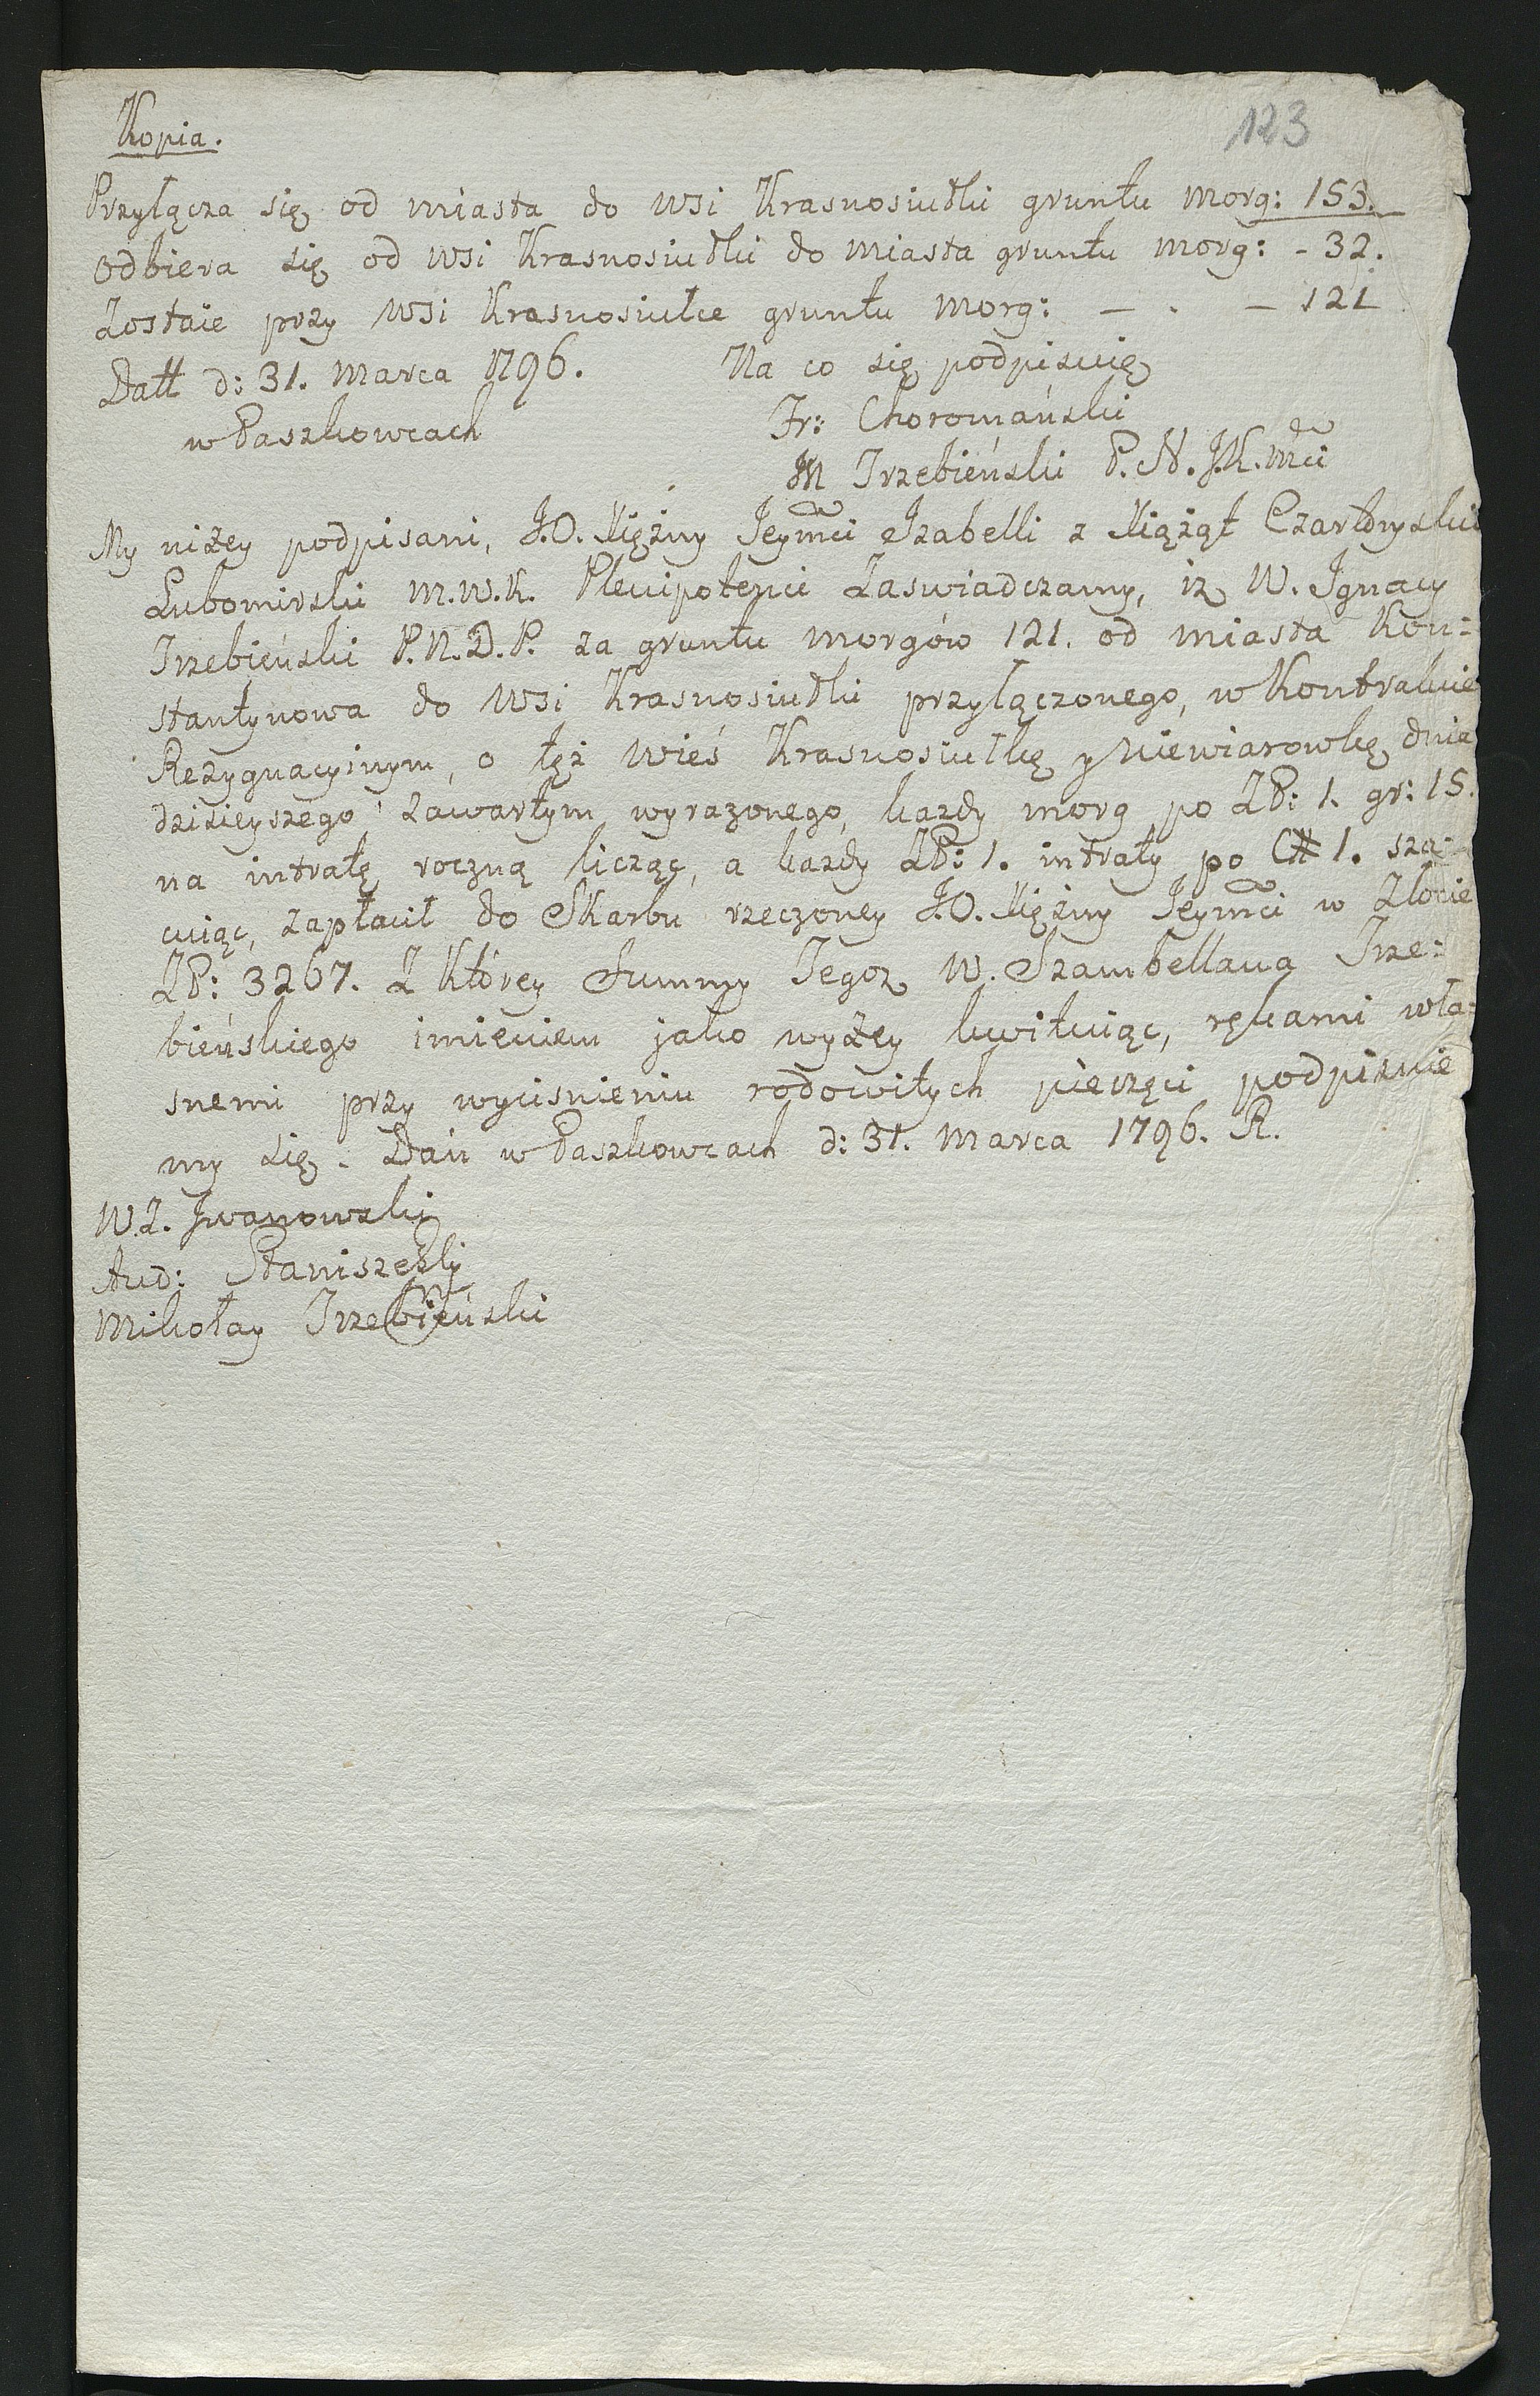 123
Kopia.
Przyłącza się od miasta do wsi Krasnosiułki gruntu morg: 153.
Odbiera się od wsi Krasnosiułki do miasta gruntu morg: - 32.
Zostaie przy wsi Krasnosiułce gruntu morg: — . — 121
Datt d: 31. Marca 1796. Na co się podpisuię
w Paszkowcach Fr: Choromański
M Trzebieński P. N. J.K.Mci
My niżey podpisani, J.O. Xiężny Jeymci Izabelli z Xiążąt Czartoryskich
Lubomirski M.W.K. Plenipotenci Zaswiadczamy, iż W. Ignacy
Trzebieński P.N.D.P. za gruntu morgów 121. od miasta Kon:
stantynowa do wsi Krasnosiułki przyłączonego, w Kontrakcie
Rezygnacyinym, o tęż wieś Krasnosiułkę y Niewiarowkę dnia
dzisieyszego zawartym wyrazonego, kazdy morg po ZP: 1. gr: 15.
na intratę roczną licząc, a kazdy ZP: 1. intraty po C# 1. sza:
cuiąc, zapłacił do Skarbu rzeczoney J.O. Xiężny Jeymci w Złocie
ZP: 3267. Z Którey Summy Tegoz W. Szambellana Trze:
bieńskiego imieniem jako wyżey kwituiąc, rękami wła:
snemi przy wycisnieniu rodowitych pieczęci podpisuie
my się. Dań w Paszkowcach d: 31. Marca 1796. R.
W.Z. Iwanowski
Aud: Staniszewski
Mikołay Trzebieński